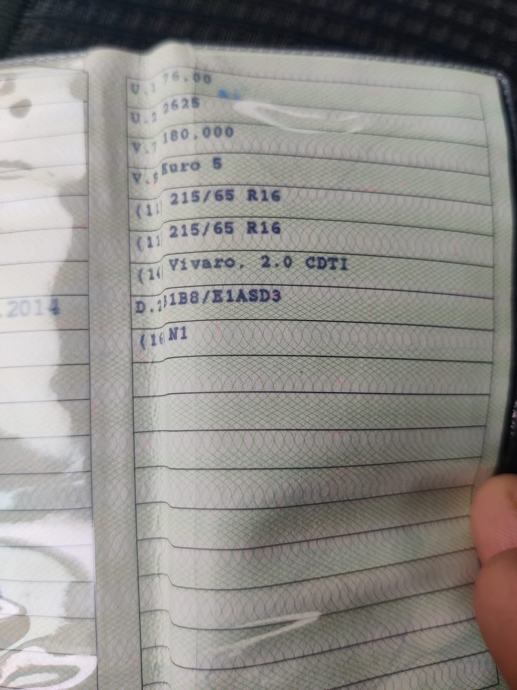 U.1 76.00
U.2 2625
V.7 180.000
V.9 Euro 5
(11 215/65 R16
(11 215/65 R16
(14 Vivaro, 2.0 CDTI
.2014 D.2 B1B8/E1ASD3
(16 N1